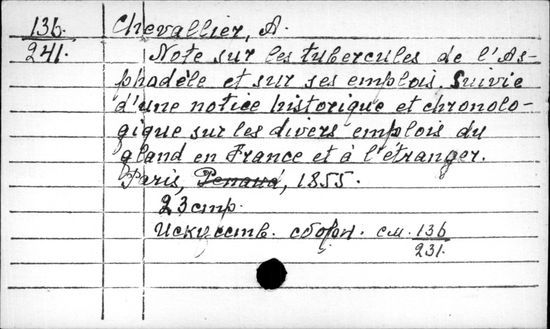 136.
241.
Chevallier, A.
Note sur les tubercules de l'As-
phadèle et sur ses emplois, suivie
d'une notice historique et chronolo-
gique sur les divers emplois du
gland en France et à l'étranger.
Paris, Penaud, 1855.
23 стр.
Искусств. сборн. см. 136
231.